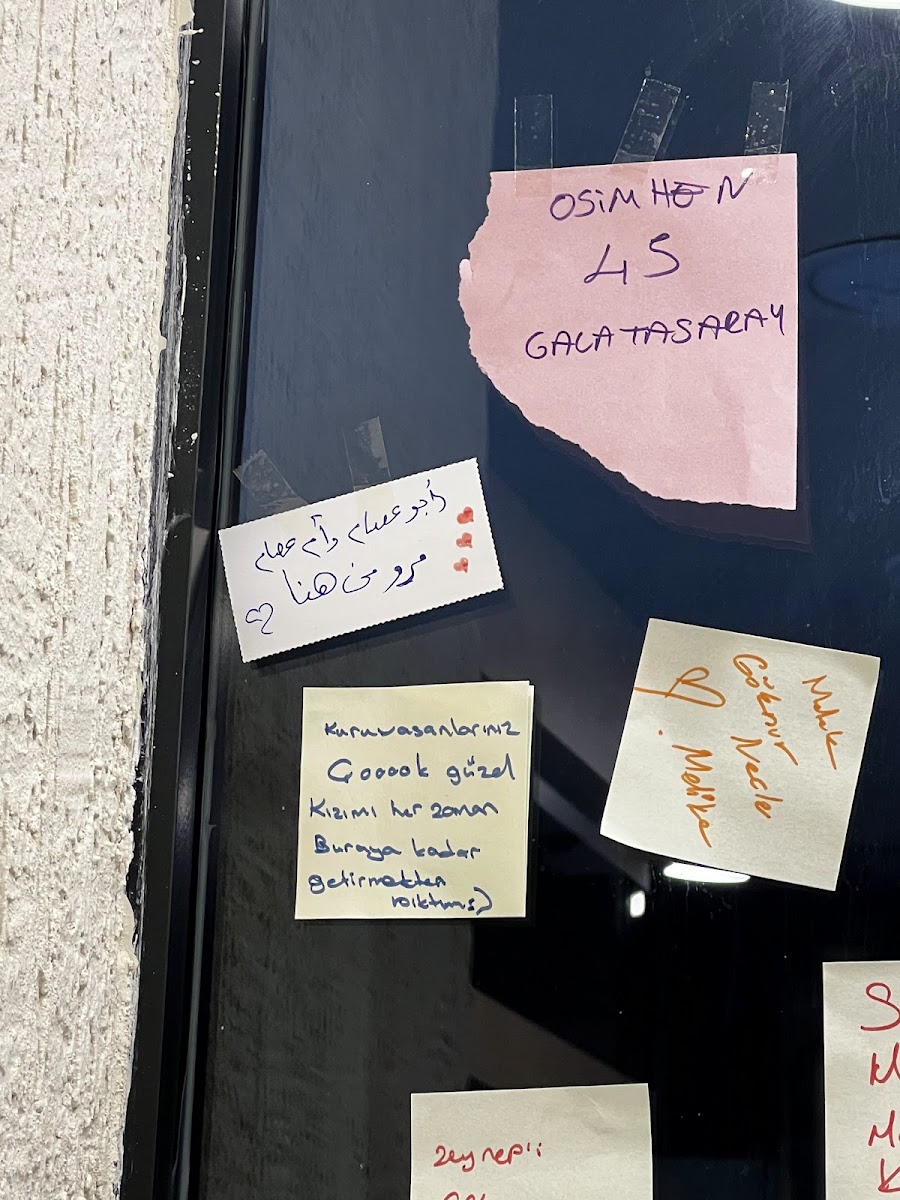 OSiMHEN
45
GALATASARAY
أبو عصام وأم عصام
مرو من هنا
Kuruvasanlarınız
Çooook güzel
Kızımı her zaman
Buraya kadar
getirmekten
bıktım:)
Göknur
Melike
Zeynep'i